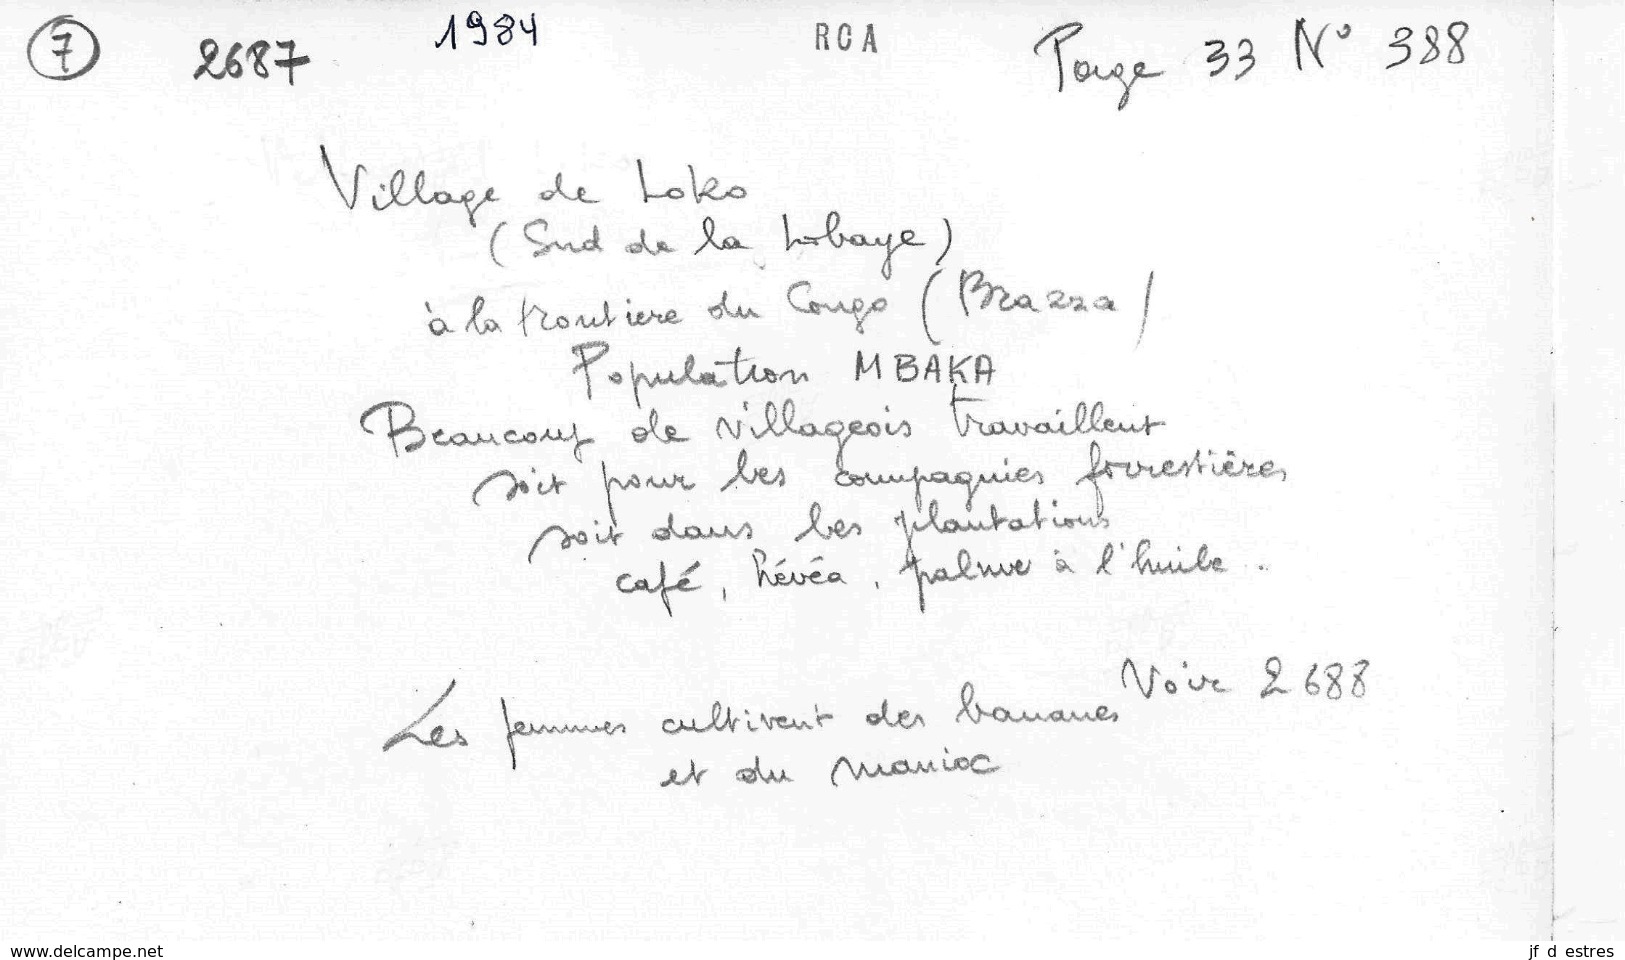 7 2687 1984 RCA Page 33 N° 388
Village de Loko
(Sud de la Lobaye)
à la frontiere du Congo (Brazza)
Population MBAKA
Beaucoup de villageois travaillent
soit pour les compagnies forrestières
soit dans les plantations
café, hévéa, palme à l'huile.
Voir 2688
Les femmes cultivent des bananes
et du manioc
www.delcampe.net jf d estres